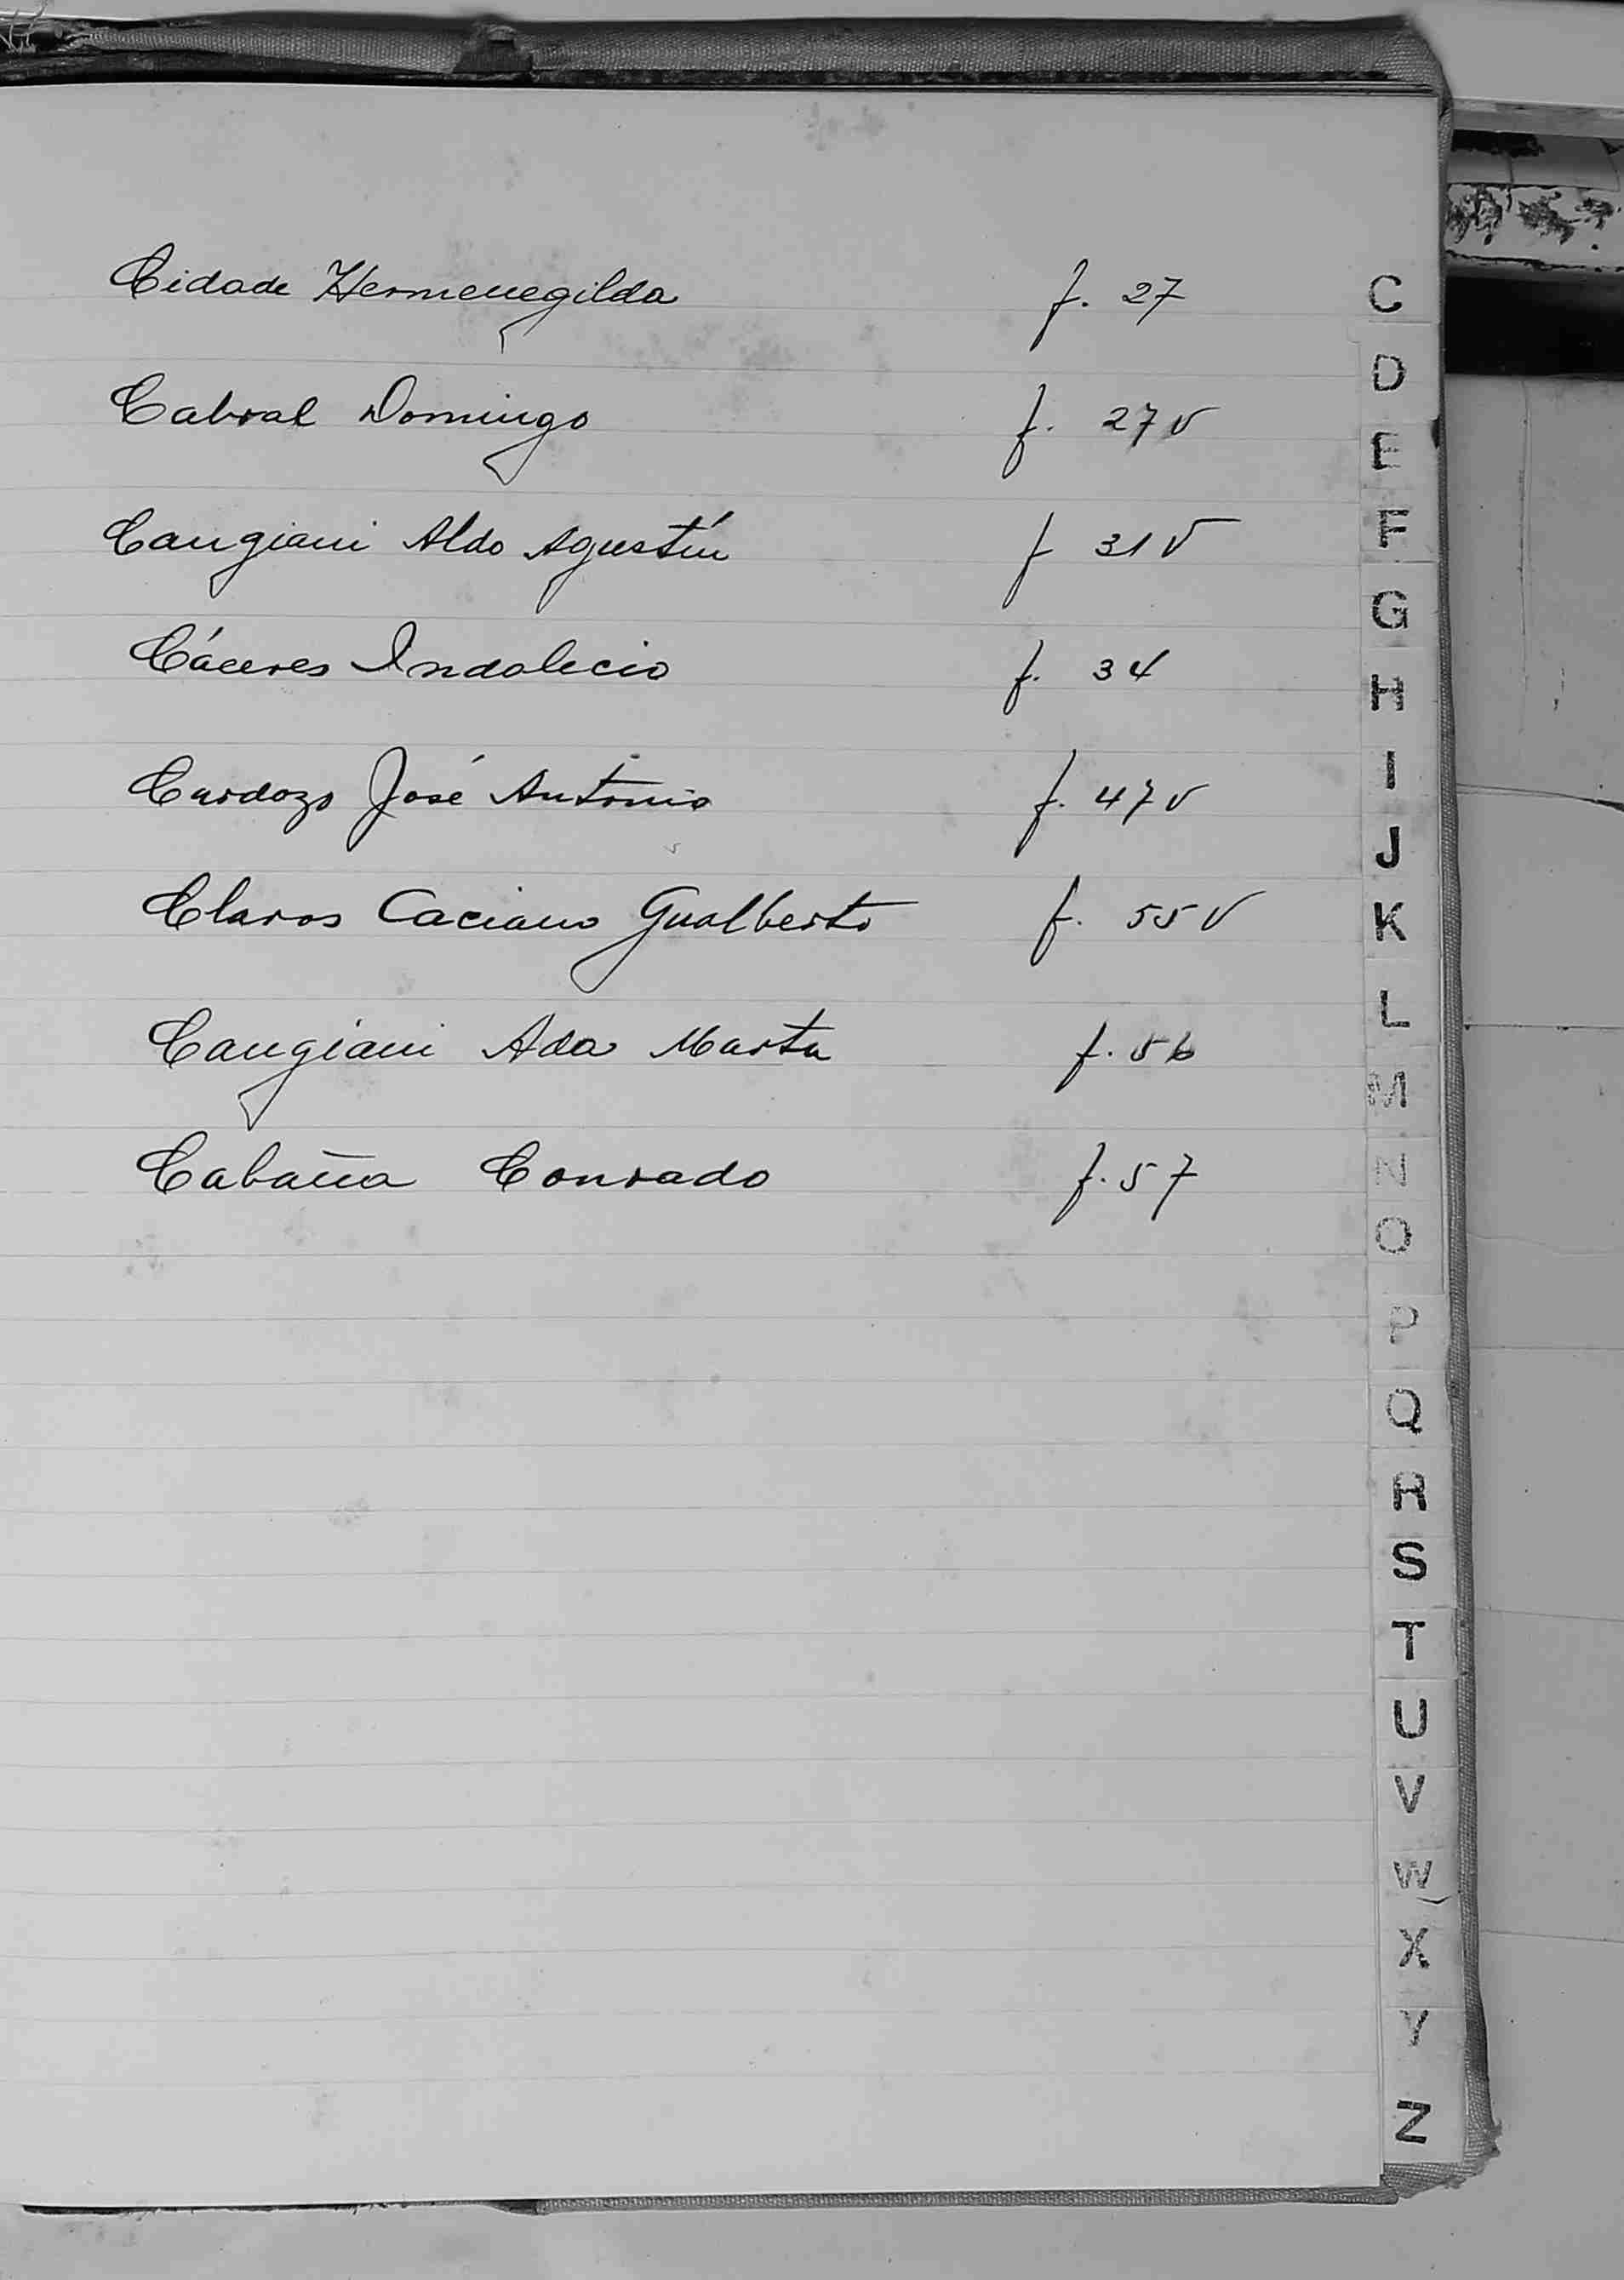 Cidade Hermenegilda f. 27
Cabral Domingo f. 27v
Cangiani Aldo Agustín f 31v
Cáceres Indalecio f. 34
Cardozo José Antonio f. 47v
Claros Caciano Gualberto f. 55v
Cangiani Ada Marta f. 56
Cabaña Conrado f. 57
C
D
E
F
G
H
I
J
K
L
M
N
O
P
Q
R
S
T
U
V
W
X
Y
Z